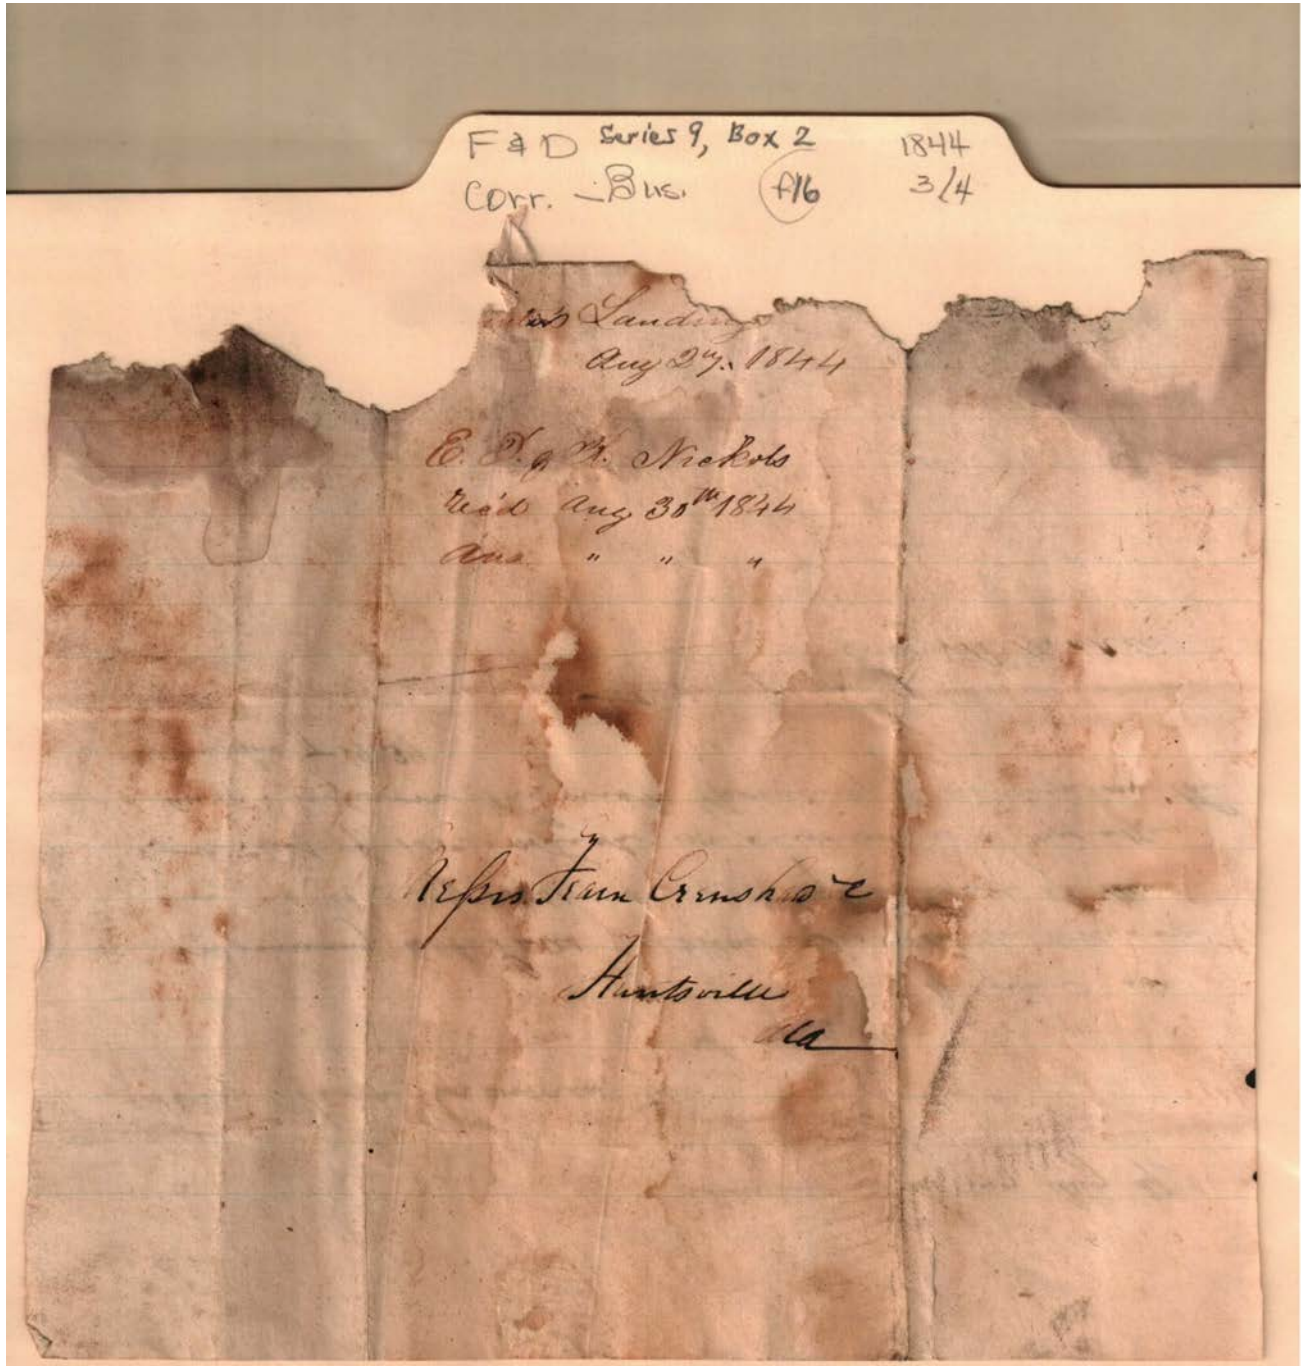 F & D Series 9, Box 2 1844
Corr. - Bus. f16 3/4
Landing
Aug 27. 1844
E. D. & K. Nickols
Rec'd Aug 30th 1844
Ans. " " "
Messrs Fearn Crenshaw &c
Huntsville
Ala